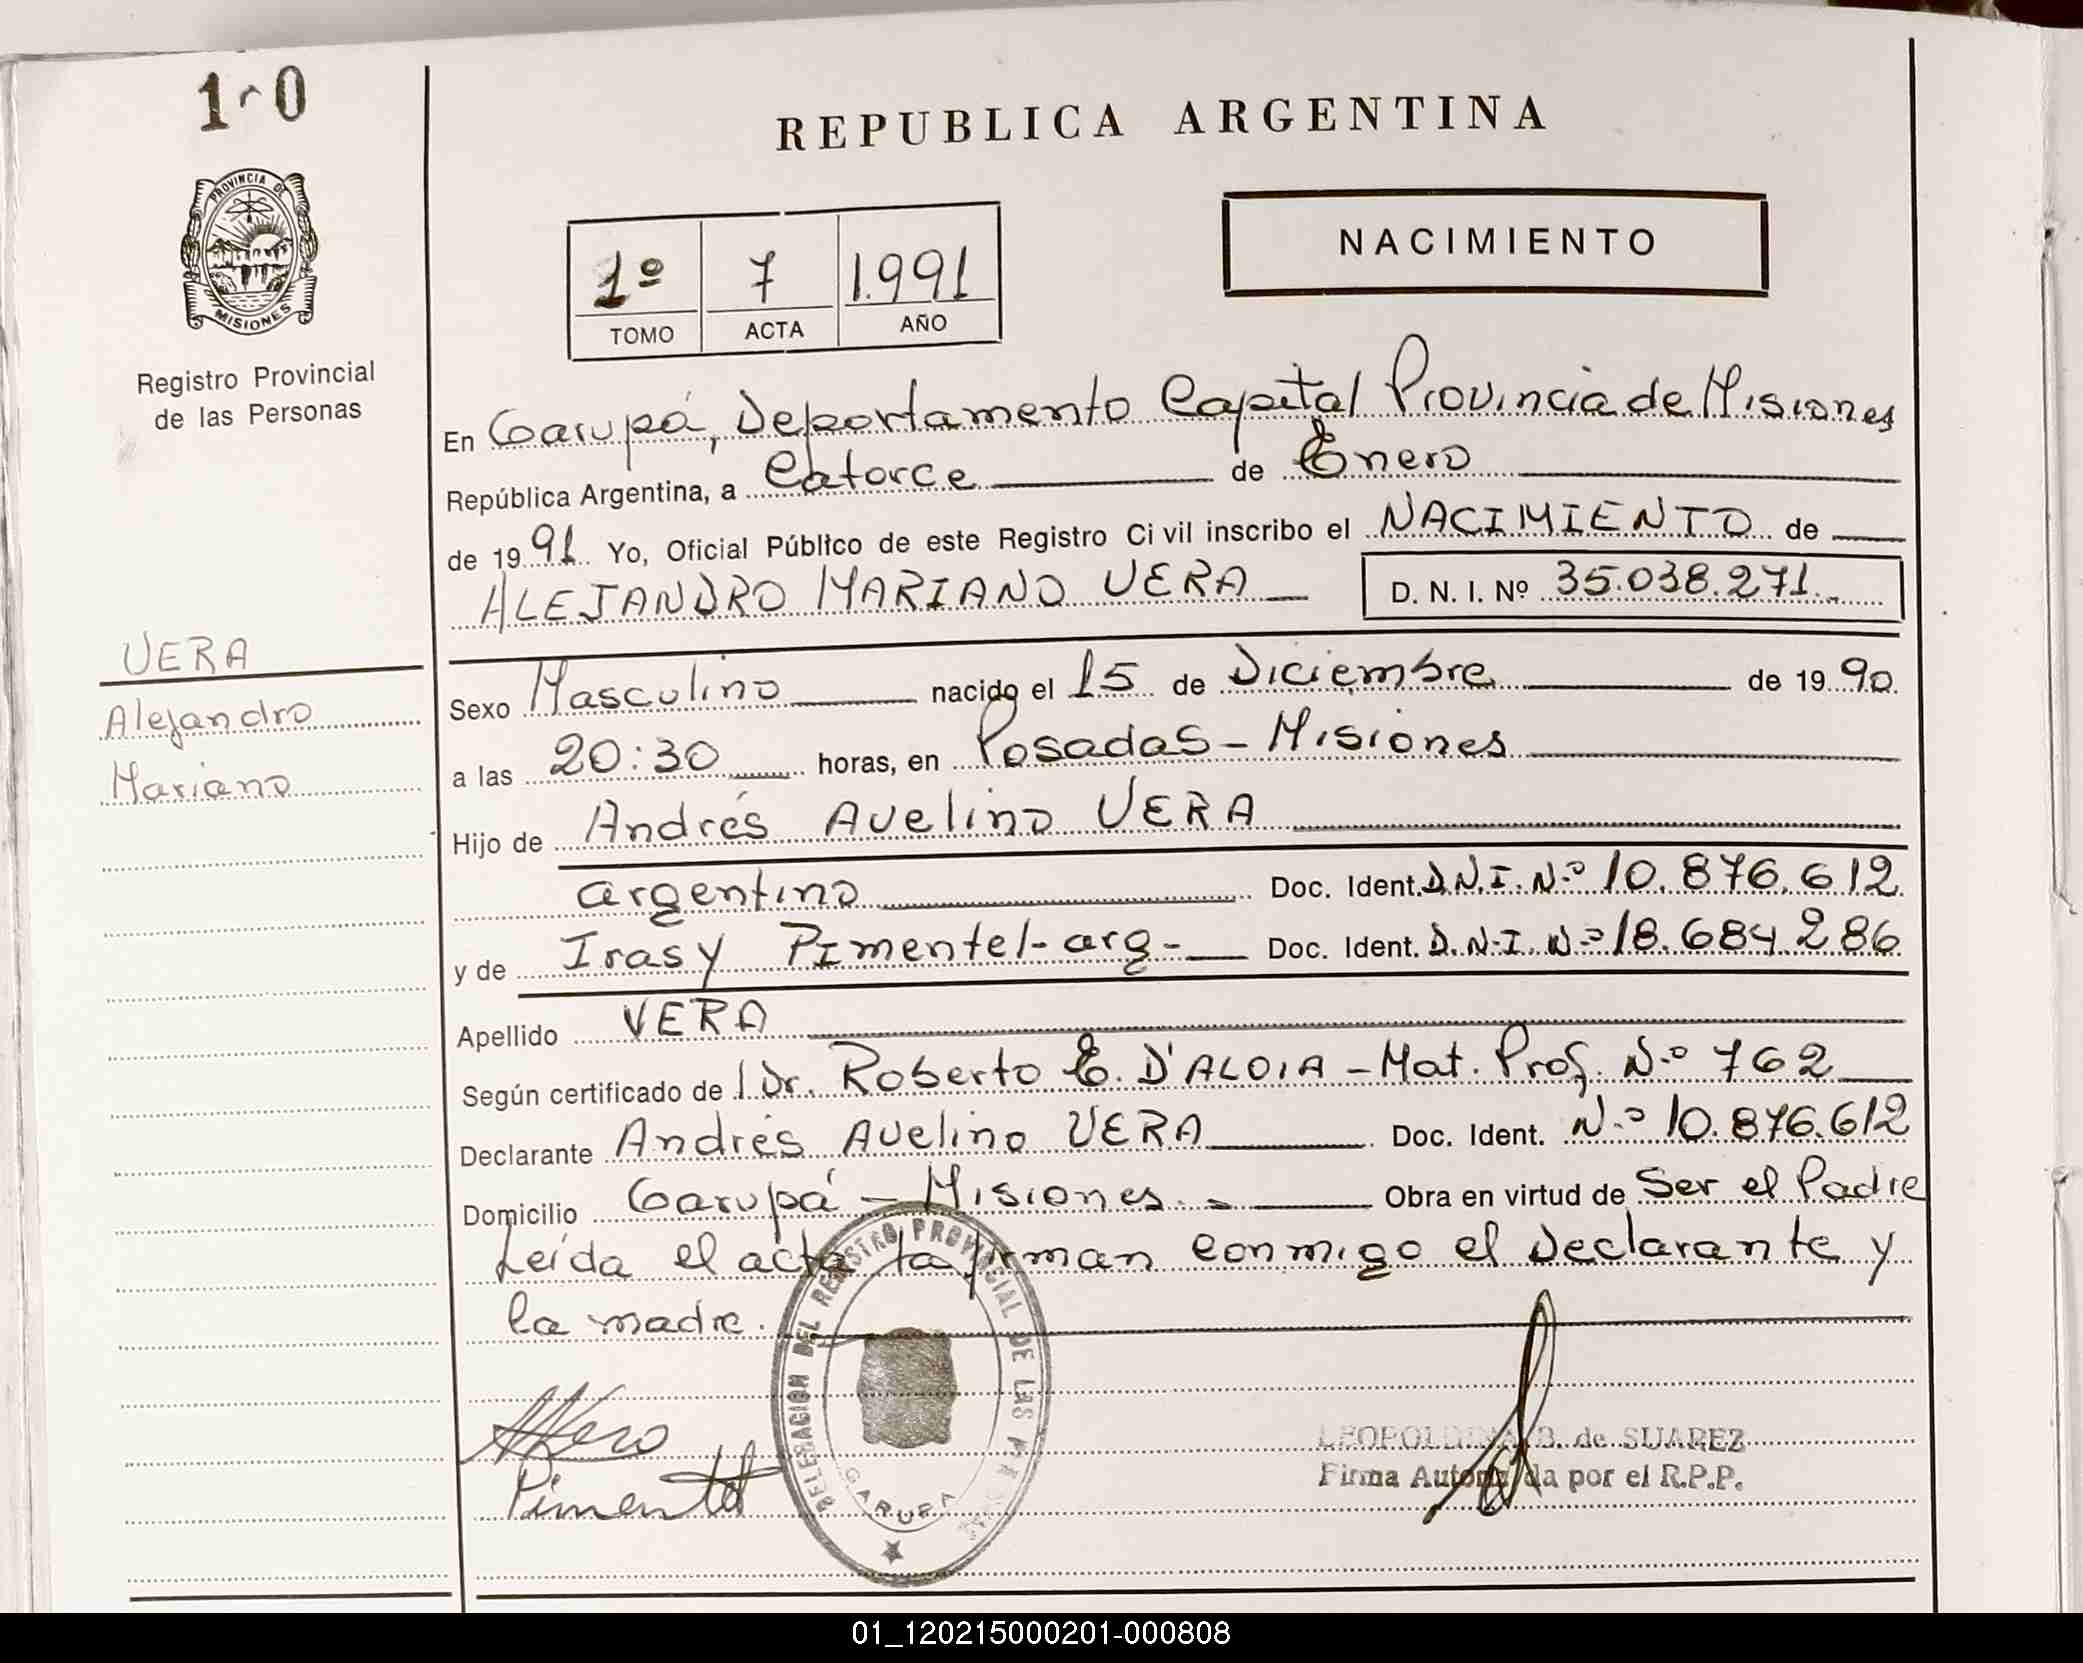 1 0
PROVINCIA DE
MISIONES
Registro Provincial
de las Personas
REPUBLICA ARGENTINA
NACIMIENTO
1º 7 1.991
TOMO ACTA AÑO
En Garupá, Departamento Capital Provincia de Misiones
República Argentina, a Catorce de Enero
de 19 91 Yo, Oficial Público de este Registro Civil inscribo el NACIMIENTO de
ALEJANDRO MARIANO VERA D. N. I. Nº 35.038.271.
VERA
Alejandro
Mariano
Sexo Masculino nacido el 15 de Diciembre de 19 90
a las 20:30 horas, en Posadas - Misiones
Hijo de Andrés Avelino VERA
argentino Doc. Ident. D.N.I. Nº 10.876.612
y de Irasy Pimentel - arg - Doc. Ident. D.N.I. Nº 18.684.286
Apellido VERA
Según certificado de l Dr. Roberto E. D'ALOIA - Mat. Prof. Nº 762
Declarante Andrés Avelino VERA Doc. Ident. Nº 10.876.612
Domicilio Garupá - Misiones. - Obra en virtud de Ser el Padre
Leída el acta la firman conmigo el Declarante y
la madre.
Pimentel
DELEGACION DEL REGISTRO PROVINCIAL DE LAS
GARUPA
LEOPOLDINA B. de SUAREZ
Firma Autorizada por el R.P.P.
01_120215000201-000808